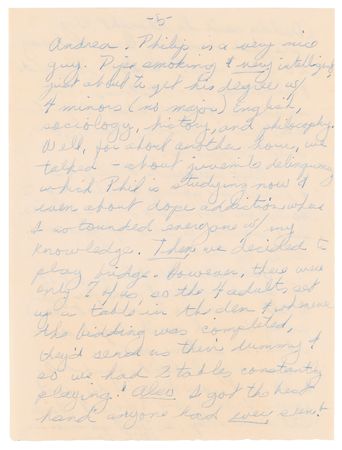 -85-
Andrea. Philip is a very nice
guy. Pipe smoking & very intelligent,
just about to get his degree w/
4 minors (no major) English,
sociology, history, and philosophy.
Well, for about another hour, we
talked - about juvenile delinquency
which Phil is studying now &
even about dope addiction where
I so astounded everyone w/ my
knowledge. Then we decided to
play bridge. However, there were
only 7 of us, so the 4 adults, set
up a table in the den & whenever
the bidding was completed,
they'd send us their dummy &
so we had 2 tables constantly
playing! Also I got the best
hand anyone had ever seen!